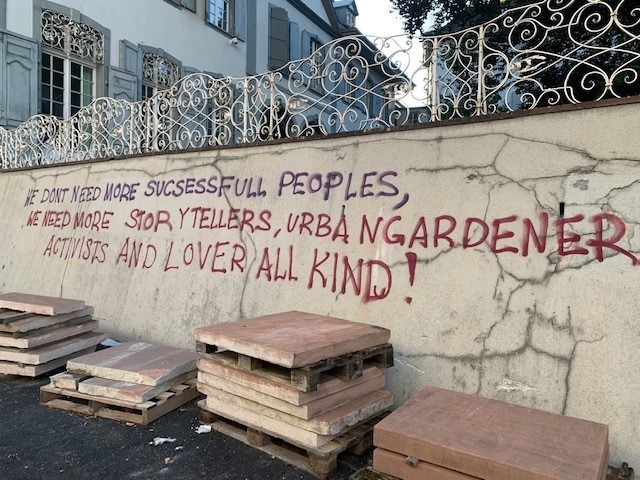 WE DONT NEED MORE SUCSESSFULL PEOPLES,
WE NEED MORE STORYTELLERS, URBANGARDENER
ACTIVISTS AND LOVER ALL KIND!